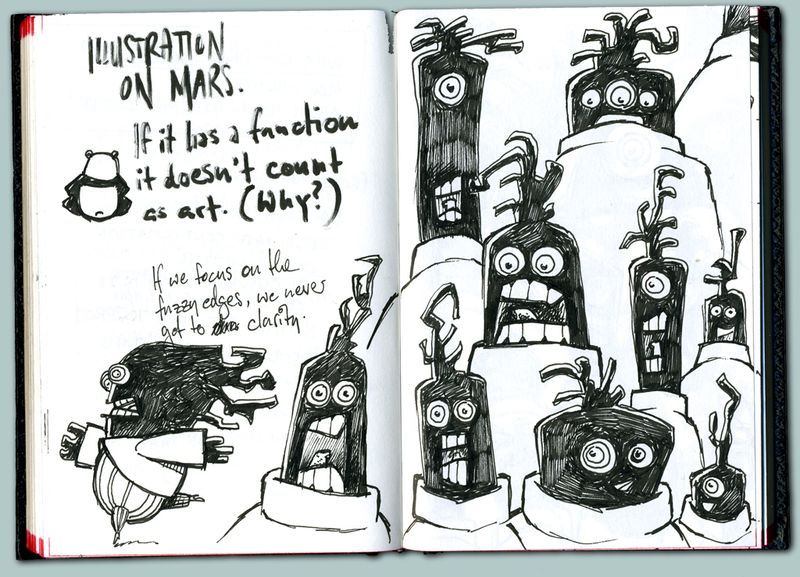 ILLUSTRATION
ON MARS.
If it has a function
it doesn't count
as art. (Why?)
If we focus on the
fuzzy edges, we never
get to clarity.